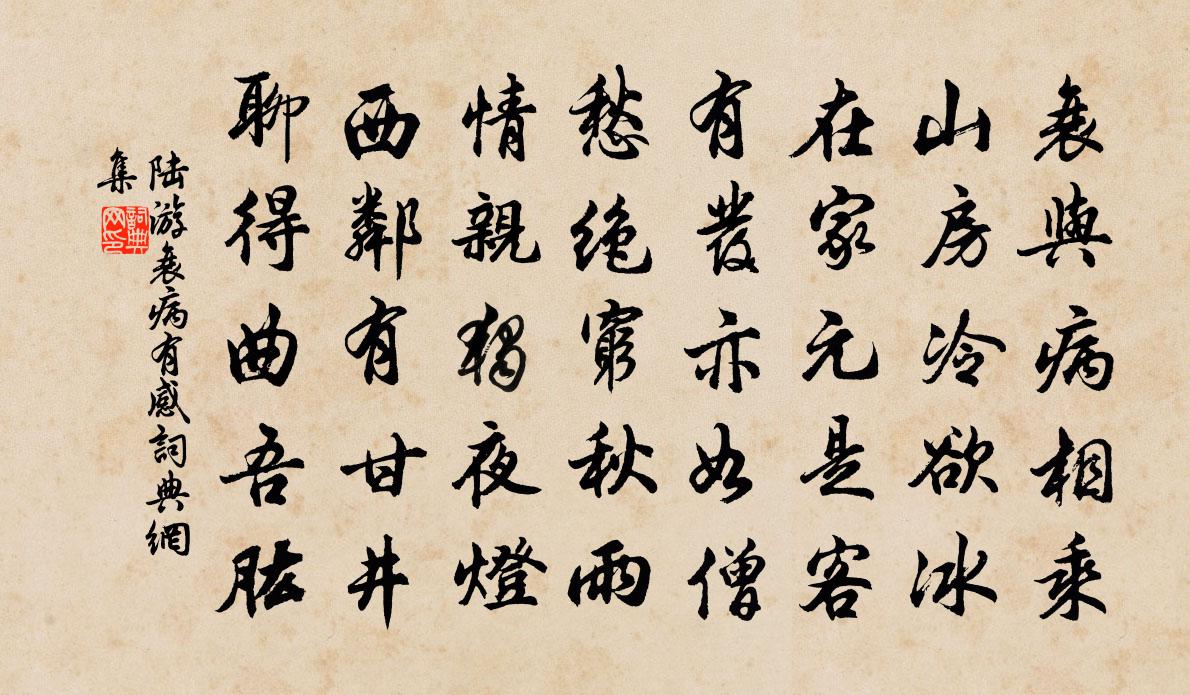 衰與病相乘
山房冷欲冰
在家元是客
有髮亦如僧
愁絕窮秋雨
情親獨夜燈
西鄰有甘井
聊得曲吾肱
陸游衰病有感詞典網
集
詞典
网印